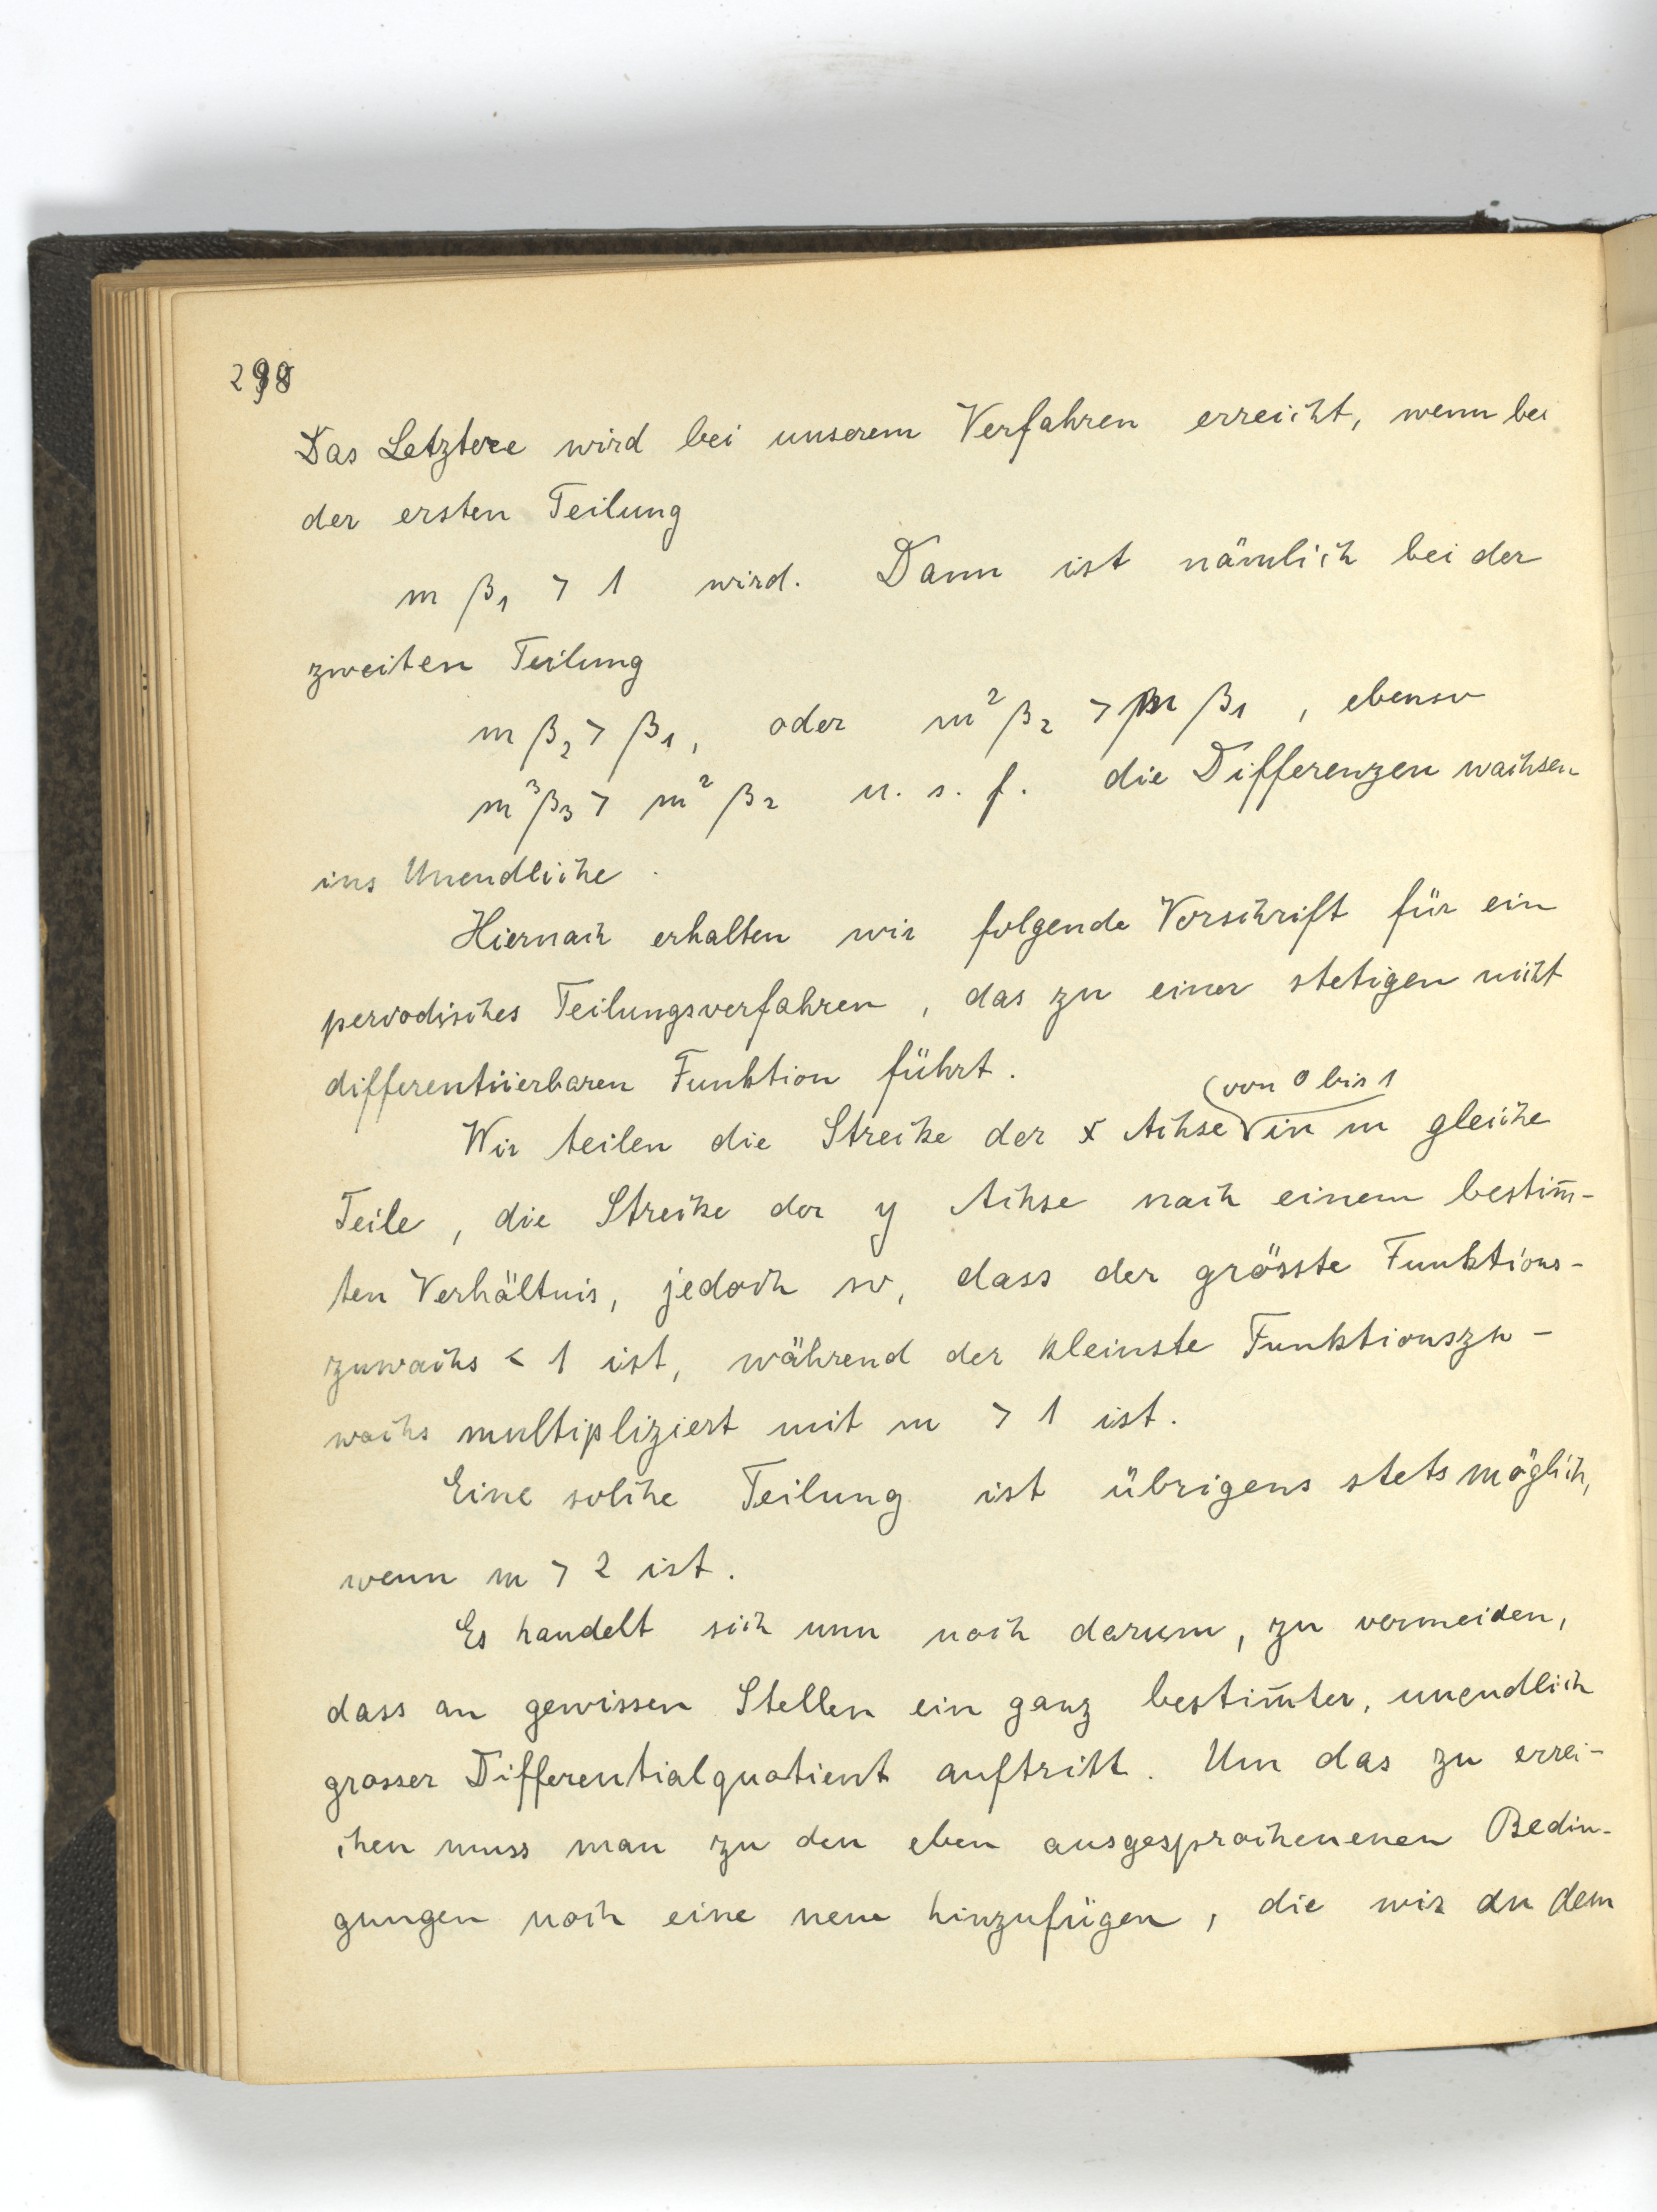 298
Das Letztere wird bei unserem Verfahren erreicht, wenn bei
der ersten Teilung
m β₁ > 1 wird. Dann ist nämlich bei der
zweiten Teilung
m β₂ > β₁, oder m² β₂ > m β₁ , ebenso
m³ β₃ > m² β₂ u. s. f. die Differenzen wachsen
ins Unendliche.
Hiernach erhalten wir folgende Vorschrift für ein
periodisches Teilungsverfahren, das zu einer stetigen nicht
differentiierbaren Funktion führt.
(von 0 bis 1
Wir teilen die Strecke der x Achse in m gleiche
Teile, die Strecke der y Achse nach einem bestim̅-
ten Verhältnis, jedoch so, dass der grösste Funktions-
zuwachs < 1 ist, während der kleinste Funktionszu-
wachs multipliziert mit m > 1 ist.
Eine solche Teilung ist übrigens stets möglich,
wenn m > 2 ist.
Es handelt sich nun noch darum, zu vermeiden,
dass an gewissen Stellen ein ganz bestim̅ter, unendlich
grosser Differentialquotient auftritt. Um das zu errei-
chen muss man zu den eben ausgesprochenenen Bedin-
gungen noch eine neue hinzufügen, die wir an dem